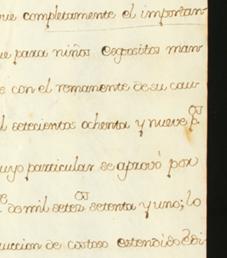 que completamente el importan-
ue para niños espositos man-
e con el remanente de su cau-
l setecientos ochenta y nueve p.
uyo particular se aprovó por
de mil setez setenta y uno; lo
uccion de costoso estendido